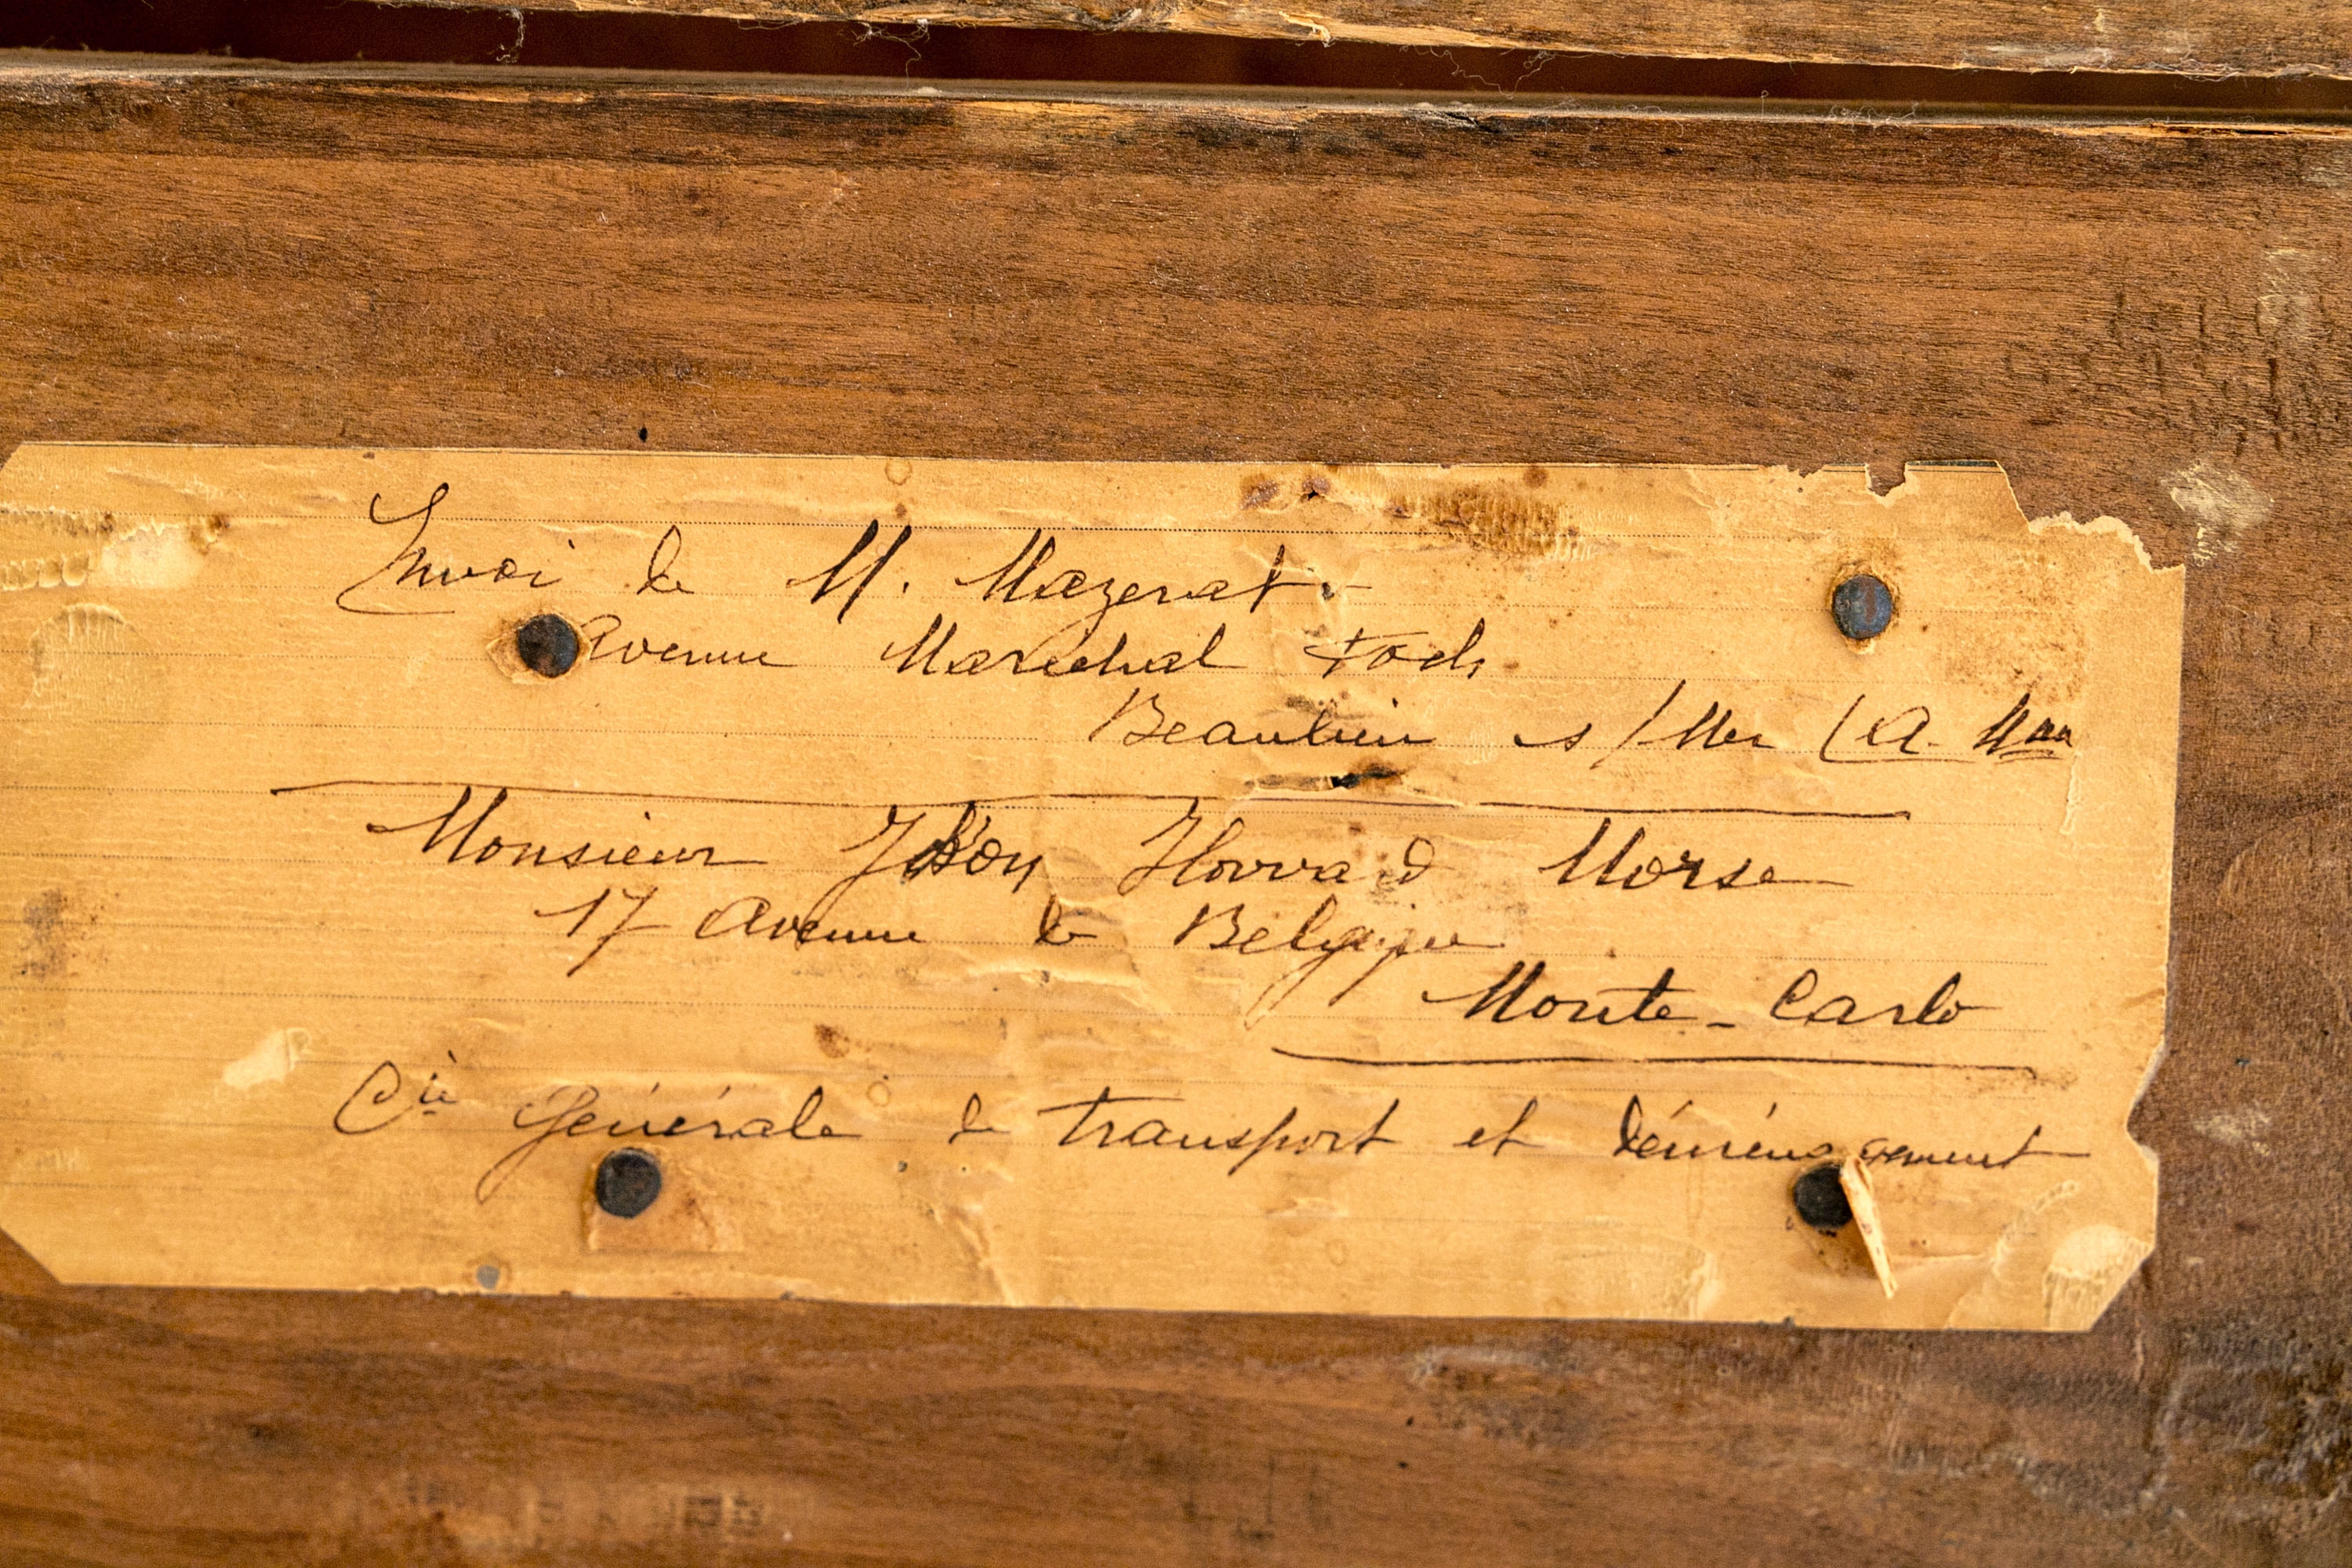 Envoi de M. Mazerat.
Avenue Marechal Foch
Beaulieu s/Mer (A. Mmes
Monsieur Howard Morse
17 Avenue de Belgique
Monte-Carlo
Cie Générale de transport et déménagement